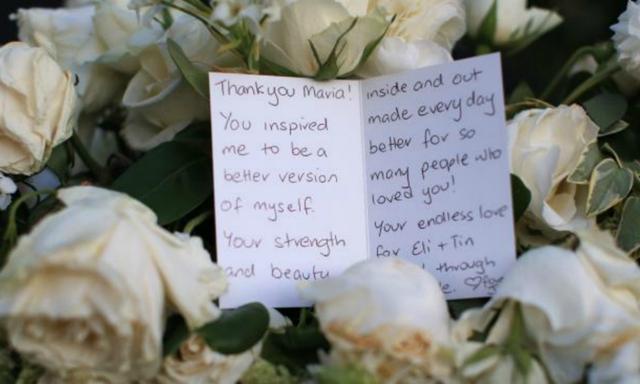 Thank you Maria!
You inspired
me to be a
better version
of myself.
Your strength
and beauty
inside and out
made every day
better for so
many people who
loved you!
Your endless love
for Eli + Tin
through